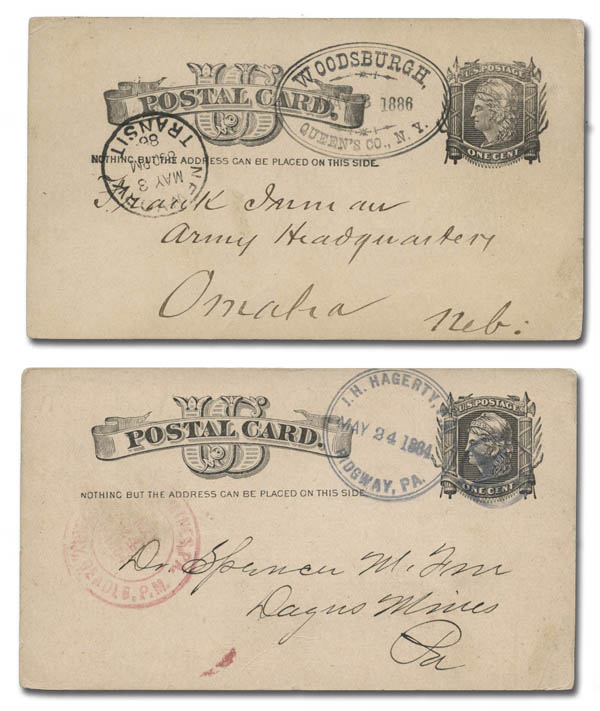 WOODSBURGH,
1886
QUEEN'S CO., N.Y.
U.S. POSTAGE
ONE CENT
US
POSTAL CARD.
NOTHING BUT THE ADDRESS CAN BE PLACED ON THIS SIDE.
NEW
MAY 3
PM
86
TRANSIT
Frank Inman
Army Headquarters
Omaha
Neb:
J.H. HAGERTY,
MAY 24 1884
RIDGWAY, PA.
U.S. POSTAGE
ONE CENT
US
POSTAL CARD.
NOTHING BUT THE ADDRESS CAN BE PLACED ON THIS SIDE
P.M.
Dr. Spencer M.
Dagus Mines
Pa